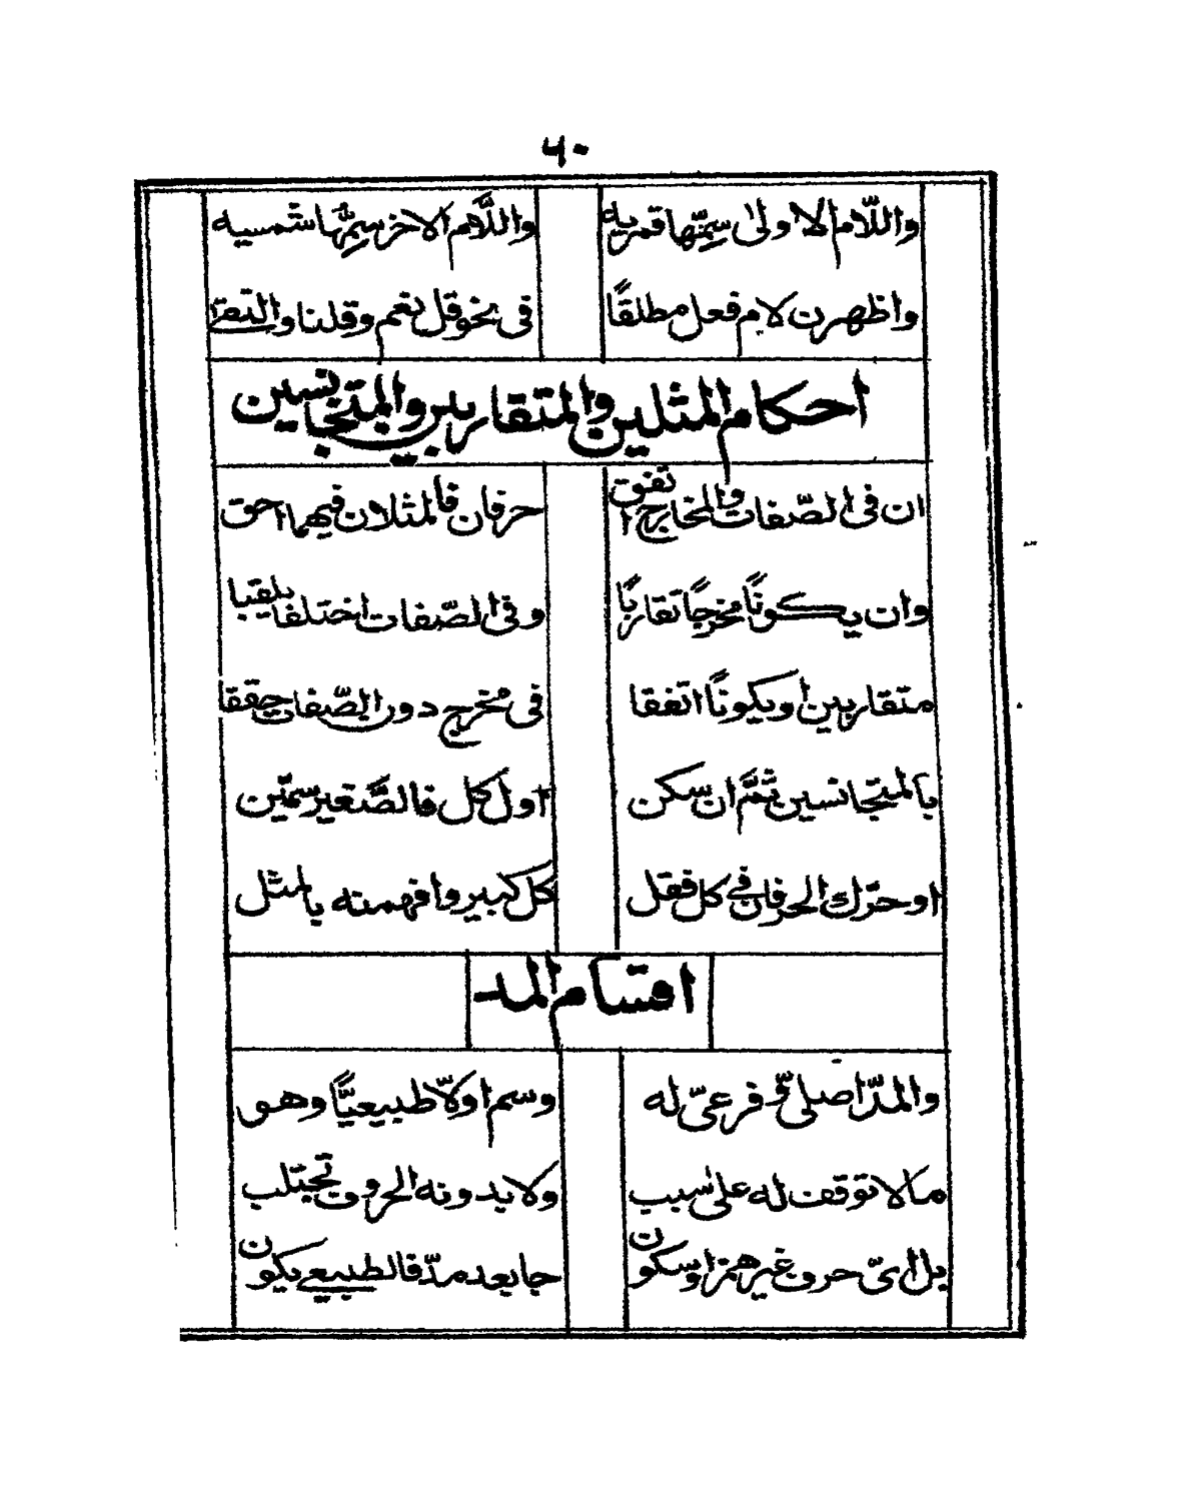 ٦٠
واللّام الاولى سمّها قمريه واللَّام الاخر سمِّها شمسيه
واظهرن لام فعل مطلقًا فى نحو قل نعم وقلنا والتقى
احكام المثلين والمتقاربين والمتجانسين
ان فى الصّفات والمخارج اتفق حرفان فالمثلان فيهما احق
وان يكونًا مخرجًا تقاربًا وفى الصّفات اختلفا يلقبا
متقاربين او يكونًا اتفقا فى مخرج دون الصّفات حققا
بالمتجانسين ثمَّ ان سكن اول كل فالصَّغير سمّين
او حرّك الحرفان فى كل فقل كل كبير وافهمنه بالمثل
اقسام المد
والمدّ اصلىّ و فرعىّ له وسم اولًّا طبيعيًّا وهو
مالا توقف له على سبب ولا بدونه الحروف تجتلب
بل اىّ حرف غير همز او سكون جا بعد مدّ فالطبيعى يكون